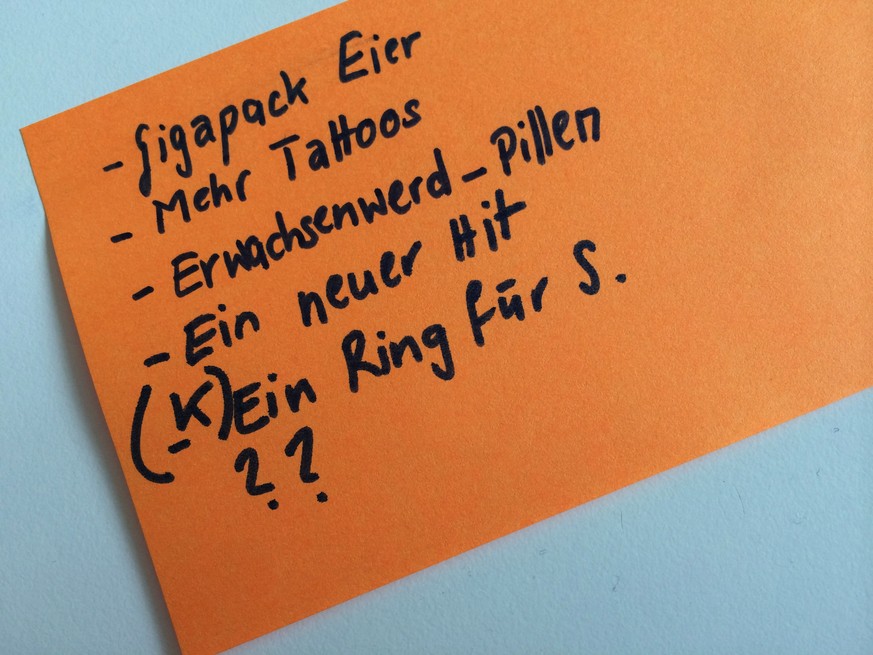 - Gigapack Eier
- Mehr Tattoos
- Erwachsenwerd-Pillen
- Ein neuer Hit
- (K)Ein Ring für S.
??